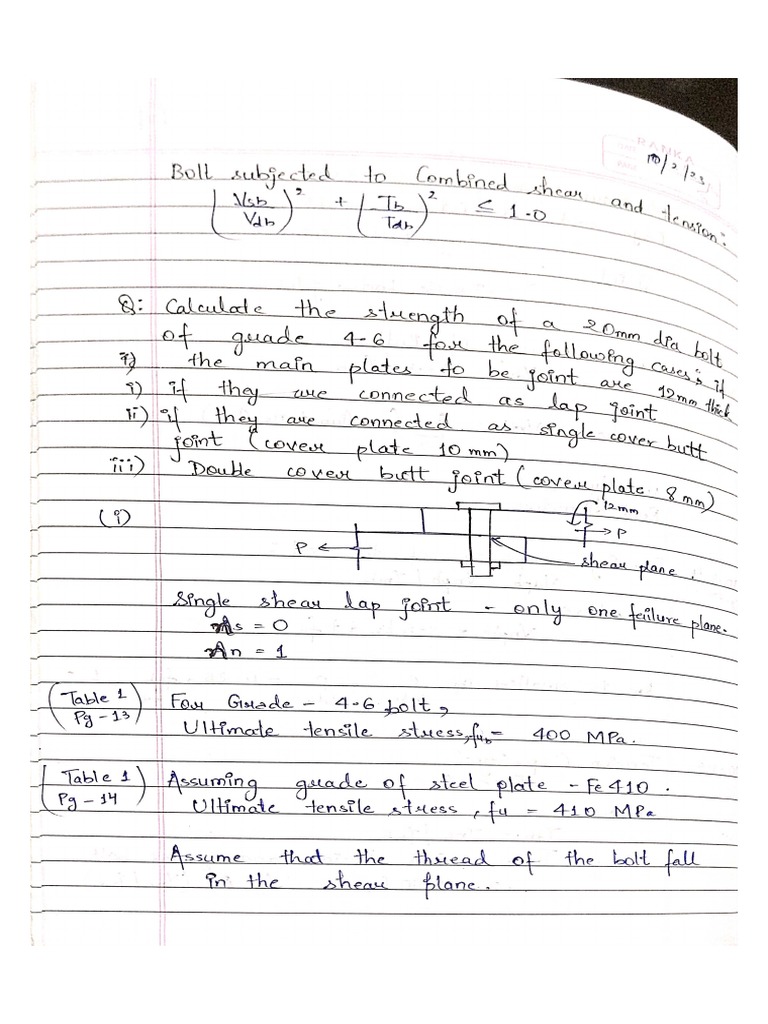 RANKA
10/2/23
Bolt subjected to Combined shear and tension:
(Vsb/Vdb)² + (Tb/Tdb)² ≤ 1.0
Q: Calculate the strength of a 20mm dia bolt
of grade 4.6 for the following cases if
the main plates to be joint are 12mm thick
i) if they are connected as lap joint
ii) if they are connected as single cover butt
joint (cover plate 10 mm)
iii) Double cover butt joint (cover plate 8 mm)
(i)
12mm
P
P
shear plane.
Single shear lap joint - only one failure plane.
ns = 0
nn = 1
(Table 1 / Pg-13) For Grade - 4.6 bolt,
Ultimate tensile stress, fub = 400 MPa.
(Table 1 / Pg-14) Assuming grade of steel plate - Fe 410.
Ultimate tensile stress, fu = 410 MPa
Assume that the thread of the bolt fall
in the shear plane.